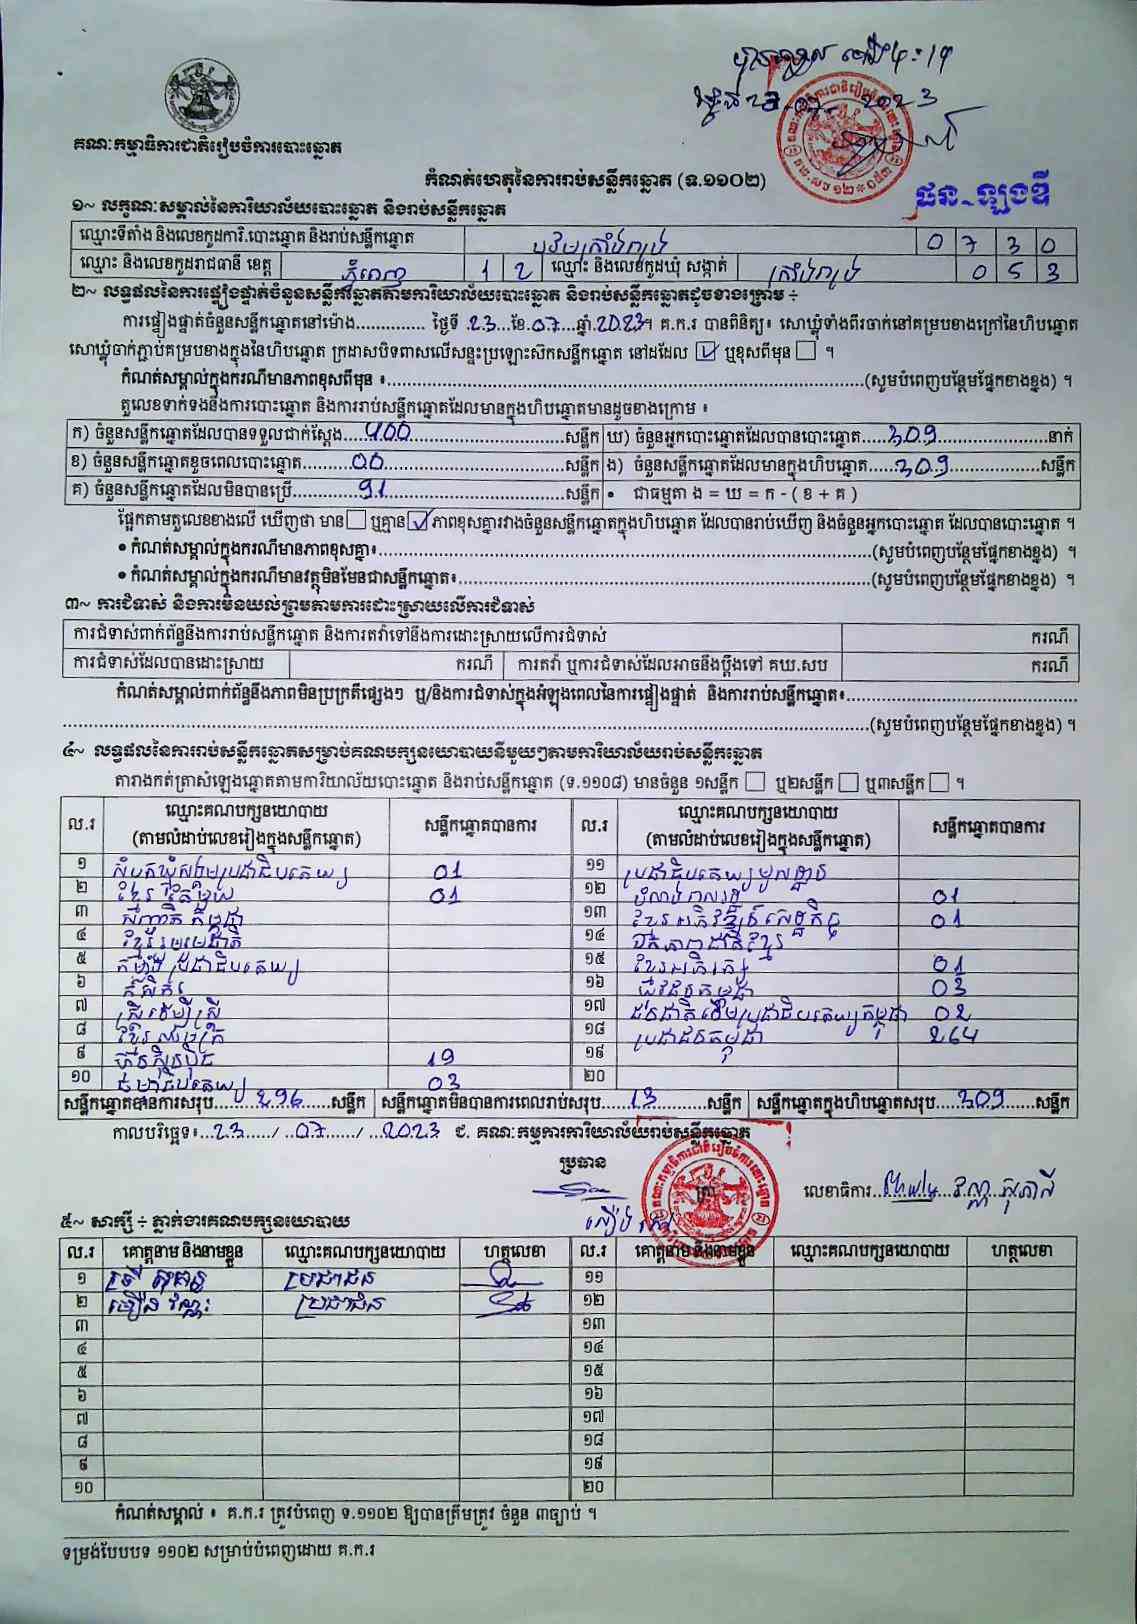 បានទទួល ម៉ោង ៤:១៤
ថ្ងៃទី 23.07.2023
គណៈកម្មាធិការជាតិរៀបចំការបោះឆ្នោត
កំណត់ហេតុនៃការរាប់សន្លឹកឆ្នោត (ទ.១១០២)
ផន ឡុងឌី
១~ លក្ខណៈសម្គាល់នៃការិយាល័យបោះឆ្នោត និងរាប់សន្លឹកឆ្នោត
ឈ្មោះទីតាំង និងលេខកូដការិ.បោះឆ្នោត និងរាប់សន្លឹកឆ្នោត បឋមក្រាំងពង្រ 0 7 3 0
ឈ្មោះ និងលេខកូដរាជធានី ខេត្ត ភ្នំពេញ 1 2 ឈ្មោះ និងលេខកូដឃុំ សង្កាត់ ក្រាំងពង្រ 0 5 3
២~ លទ្ធផលនៃការផ្ទៀងផ្ទាត់ចំនួនសន្លឹកឆ្នោតតាមការិយាល័យបោះឆ្នោត និងរាប់សន្លឹកឆ្នោតដូចខាងក្រោម ÷
ការផ្ទៀងផ្ទាត់ចំនួនសន្លឹកឆ្នោតនៅម៉ោង.............. ថ្ងៃទី 23...ខែ.07...ឆ្នាំ.2023។ គ.ក.រ បានពិនិត្យ៖ សោឃ្លុំទាំងពីរចាក់នៅគម្របខាងក្រៅនៃហិបឆ្នោត
សោឃ្លុំចាក់ភ្ជាប់គម្របខាងក្នុងនៃហិបឆ្នោត ក្រដាសបិទពាសលើសន្ទះប្រឡោះស៊កសន្លឹកឆ្នោត នៅដដែល ☑ ឬខុសពីមុន ☐ ។
កំណត់សម្គាល់ក្នុងករណីមានភាពខុសពីមុន ៖..............................(សូមបំពេញបន្ថែមផ្នែកខាងខ្នង) ។
តួលេខទាក់ទងនឹងការបោះឆ្នោត និងការរាប់សន្លឹកឆ្នោតដែលមានក្នុងហិបឆ្នោតមានដូចខាងក្រោម ៖
ក) ចំនួនសន្លឹកឆ្នោតដែលបានទទួលជាក់ស្តែង....400....សន្លឹក ឃ) ចំនួនអ្នកបោះឆ្នោតដែលបានបោះឆ្នោត....309....នាក់
ខ) ចំនួនសន្លឹកឆ្នោតខូចពេលបោះឆ្នោត....00....សន្លឹក ង) ចំនួនសន្លឹកឆ្នោតដែលមានក្នុងហិបឆ្នោត....309....សន្លឹក
គ) ចំនួនសន្លឹកឆ្នោតដែលមិនបានប្រើ....91....សន្លឹក • ជាធម្មតា ង = ឃ = ក - ( ខ + គ )
ផ្អែកតាមតួលេខខាងលើ ឃើញថា មាន ☐ ឬគ្មាន ☑ ភាពខុសគ្នារវាងចំនួនសន្លឹកឆ្នោតក្នុងហិបឆ្នោត ដែលបានរាប់ឃើញ និងចំនួនអ្នកបោះឆ្នោត ដែលបានបោះឆ្នោត ។
• កំណត់សម្គាល់ក្នុងករណីមានភាពខុសគ្នា៖..............................(សូមបំពេញបន្ថែមផ្នែកខាងខ្នង) ។
• កំណត់សម្គាល់ក្នុងករណីមានវត្ថុមិនមែនជាសន្លឹកឆ្នោត៖..............................(សូមបំពេញបន្ថែមផ្នែកខាងខ្នង) ។
៣~ ការជំទាស់ និងការមិនយល់ព្រមតាមការដោះស្រាយលើការជំទាស់
ការជំទាស់ពាក់ព័ន្ធនឹងការរាប់សន្លឹកឆ្នោត និងការតវ៉ាទៅនឹងការដោះស្រាយលើការជំទាស់ ករណី
ការជំទាស់ដែលបានដោះស្រាយ ករណី ការតវ៉ា ឬការជំទាស់ដែលអាចនឹងប្តឹងទៅ គឃ.សប ករណី
កំណត់សម្គាល់ពាក់ព័ន្ធនឹងភាពមិនប្រក្រតីផ្សេងៗ ឬ/និងការជំទាស់ក្នុងអំឡុងពេលនៃការផ្ទៀងផ្ទាត់ និងការរាប់សន្លឹកឆ្នោត៖..............................
..............................(សូមបំពេញបន្ថែមផ្នែកខាងខ្នង) ។
៤~ លទ្ធផលនៃការរាប់សន្លឹកឆ្នោតសម្រាប់គណបក្សនយោបាយនីមួយៗតាមការិយាល័យរាប់សន្លឹកឆ្នោត
តារាងកត់ត្រាសំឡេងឆ្នោតតាមការិយាល័យបោះឆ្នោត និងរាប់សន្លឹកឆ្នោត (ទ.១១០៨) មានចំនួន ១សន្លឹក ☐ ឬ២សន្លឹក ☐ ឬ៣សន្លឹក ☐ ។
ល.រ ឈ្មោះគណបក្សនយោបាយ (តាមលំដាប់លេខរៀងក្នុងសន្លឹកឆ្នោត) សន្លឹកឆ្នោតបានការ ល.រ ឈ្មោះគណបក្សនយោបាយ (តាមលំដាប់លេខរៀងក្នុងសន្លឹកឆ្នោត) សន្លឹកឆ្នោតបានការ
១ សំបុកឃ្មុំសង្គមប្រជាធិបតេយ្យ 01 ១១ ប្រជាធិបតេយ្យមូលដ្ឋាន
២ ខ្មែរតែមួយ 01 ១២ បំណងពលរដ្ឋ 01
៣ សញ្ជាតិកម្ពុជា ១៣ ខ្មែរអភិវឌ្ឍន៍សេដ្ឋកិច្ច 01
៤ ខ្មែររួបរួមជាតិ ១៤ ឯកភាពជាតិខ្មែរ
៥ កម្លាំងប្រជាធិបតេយ្យ ១៥ ខ្មែរអភិរក្ស 01
៦ កសិករ ១៦ យុវជនកម្ពុជា 03
៧ ស្រ្តីដើម្បីស្រ្តី ១៧ ជនជាតិដើមប្រជាធិបតេយ្យកម្ពុជា 02
៨ ខ្មែរឈប់ក្រ ១៨ ប្រជាជនកម្ពុជា 264
៩ ហ្វ៊ុនស៊ិនប៉ិច 19 ១៩
១០ ធម្មាធិបតេយ្យ 03 ២០
សន្លឹកឆ្នោតបានការសរុប....296....សន្លឹក សន្លឹកឆ្នោតមិនបានការពេលរាប់សរុប....13....សន្លឹក សន្លឹកឆ្នោតក្នុងហិបឆ្នោតសរុប....309....សន្លឹក
កាលបរិច្ឆេទ៖...23..../...07..../...2023 ជ. គណៈកម្មការការិយាល័យរាប់សន្លឹកឆ្នោត
ប្រធាន
លេខាធិការ
៥~ សាក្សី ÷ ភ្នាក់ងារគណបក្សនយោបាយ
ល.រ គោត្តនាម និងនាមខ្លួន ឈ្មោះគណបក្សនយោបាយ ហត្ថលេខា ល.រ គោត្តនាម និងនាមខ្លួន ឈ្មោះគណបក្សនយោបាយ ហត្ថលេខា
១ ប្រជាជន ១១
២ វណ្ណៈ ប្រជាជន ១២
៣ ១៣
៤ ១៤
៥ ១៥
៦ ១៦
៧ ១៧
៨ ១៨
៩ ១៩
១០ ២០
កំណត់សម្គាល់ ៖ គ.ក.រ ត្រូវបំពេញ ទ.១១០២ ឱ្យបានត្រឹមត្រូវ ចំនួន ៣ច្បាប់ ។
ទម្រង់បែបបទ ១១០២ សម្រាប់បំពេញដោយ គ.ក.រ